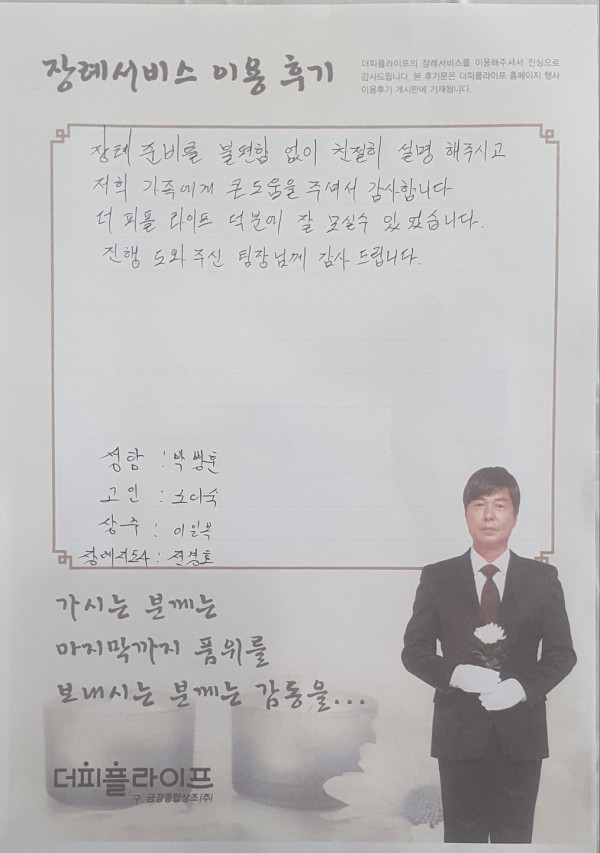 장례서비스 이용 후기
더피플라이프의 장례서비스를 이용해주셔서 진심으로
감사드립니다. 본 후기문은 더피플라이프 홈페이지 행사
이용후기 게시판에 기재됩니다.
장례 준비를 불편함 없이 친절히 설명 해주시고
저희 가족에게 큰도움을 주셔서 감사합니다
더 피플 라이프 덕분에 잘 모실수 있었습니다.
진행 도와주신 팀장님께 감사 드립니다.
성함 :
고인 :
상주 :
장례지도사 :
가시는 분께는
마지막까지 품위를
보내시는 분께는 감동을...
더피플라이프
구. 금강종합상조(주)